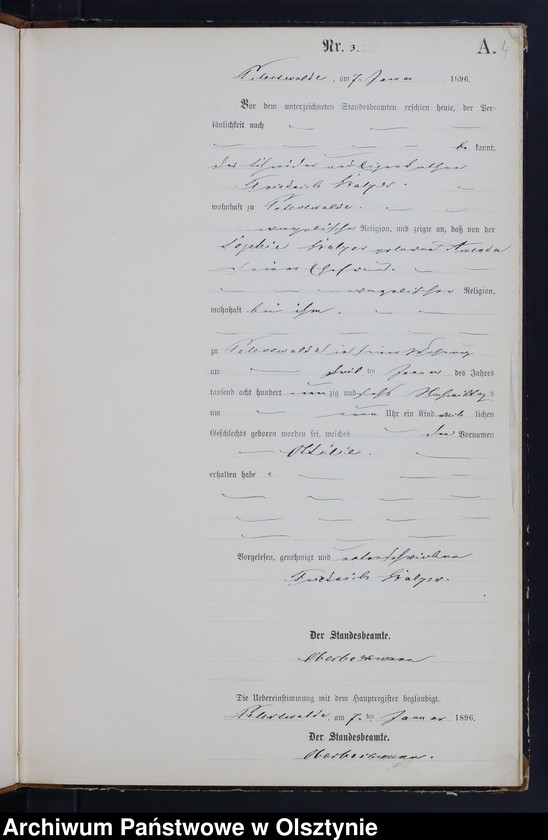 Nr. 3.
A. 4
Peterswalde, am 7. Januar 1896.
Vor dem unterzeichneten Standesbeamten erschien heute, der Per-
sönlichkeit nach
be kannt,
der Schneider und
Friedrich
wohnhaft zu Peterswalde.
evangelischer Religion, und zeigte an, daß von der
Sophie geborene
seiner Ehefrau
evangelischer Religion,
wohnhaft bei ihm.
zu Peterswalde in seiner Wohnung
am ten Januar des Jahres
tausend acht hundert neun zig und sechs Nachmittags
um neun Uhr ein Kind weib lichen
Geschlechts geboren worden sei, welches den Vornamen
Ottilie.
erhalten habe
Vorgelesen, genehmigt und unterschrieben
Friedrich
Der Standesbeamte.
Die Uebereinstimmung mit dem Hauptregister beglaubigt.
Peterswalde, am 7. ten Januar 1896.
Der Standesbeamte.
Archiwum Państwowe w Olsztynie